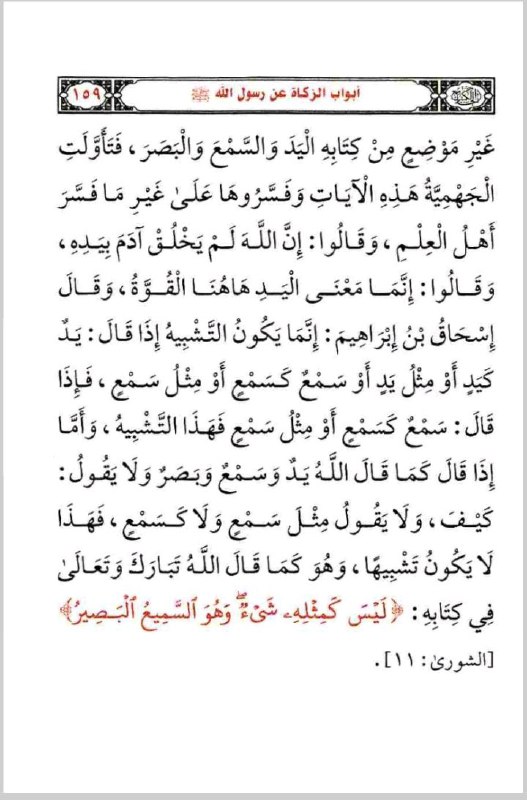 أبواب الزكاة عن رسول الله ﷺ
١٥٩
غَيْرِ مَوْضِعٍ مِنْ كِتَابِهِ الْيَدَ وَالسَّمْعَ وَالْبَصَرَ ، فَتَأَوَّلَتِ
الْجَهْمِيَّةُ هَذِهِ الْآيَاتِ وَفَسَّرُوهَا عَلَىٰ غَيْرِ مَا فَسَّرَ
أَهْلُ الْعِلْمِ ، وَقَالُوا : إِنَّ اللَّهَ لَمْ يَخْلُقْ آدَمَ بِيَدِهِ ،
وَقَالُوا : إِنَّمَا مَعْنَى الْيَدِ هَاهُنَا الْقُوَّةُ ، وَقَالَ
إِسْحَاقُ بْنُ إِبْرَاهِيمَ : إِنَّمَا يَكُونُ التَّشْبِيهُ إِذَا قَالَ : يَدٌ
كَيَدٍ أَوْ مِثْلُ يَدٍ أَوْ سَمْعٌ كَسَمْعٍ أَوْ مِثْلُ سَمْعٍ ، فَإِذَا
قَالَ : سَمْعٌ كَسَمْعٍ أَوْ مِثْلُ سَمْعٍ فَهَذَا التَّشْبِيهُ ، وَأَمَّا
إِذَا قَالَ كَمَا قَالَ اللَّهُ يَدٌ وَسَمْعٌ وَبَصَرٌ وَلَا يَقُولُ :
كَيْفَ ، وَلَا يَقُولُ مِثْلَ سَمْعٍ وَلَا كَسَمْعٍ ، فَهَذَا
لَا يَكُونُ تَشْبِيهًا ، وَهُوَ كَمَا قَالَ اللَّهُ تَبَارَكَ وَتَعَالَىٰ
فِي كِتَابِهِ : ﴿لَيْسَ كَمِثْلِهِۦ شَىْءٌۖ وَهُوَ ٱلسَّمِيعُ ٱلْبَصِيرُ﴾
[الشورىٰ : ١١] .